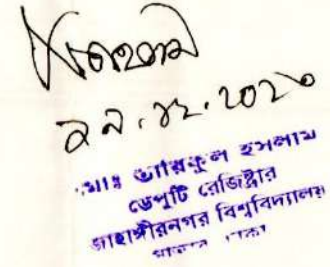 ২৯.১২.২০২০
মোঃ ইসলাম
ডেপুটি রেজিষ্ট্রার
জাহাঙ্গীরনগর বিশ্ববিদ্যালয়
সাভার, ঢাকা